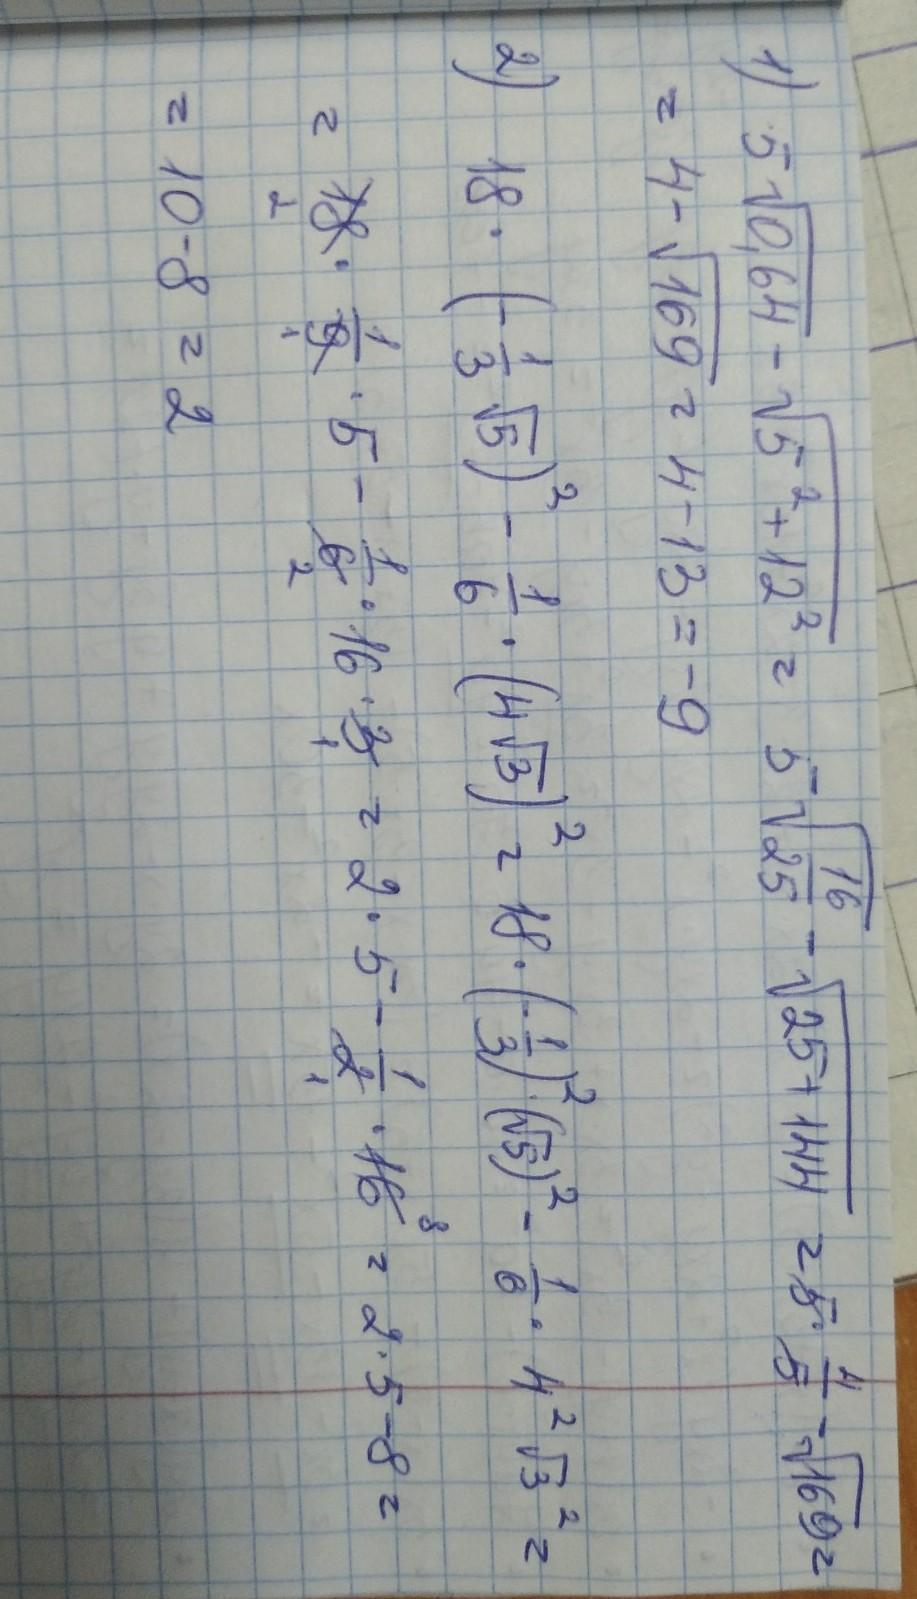 1) 5√0,64 - √5²+12² = 5√16/25 - √25+144 = 5·4/5 - √169 =
= 4 - √169 = 4-13 = -9
2) 18·(-1/3√5)² - 1/6·(4√3)² = 18·(-1/3)²·(√5)² - 1/6·4²√3² =
= 18·1/9·5 - 1/6·16·3 = 2·5 - 1/2·16 = 2·5-8 =
2 1 2 1 1 8
= 10-8 = 2